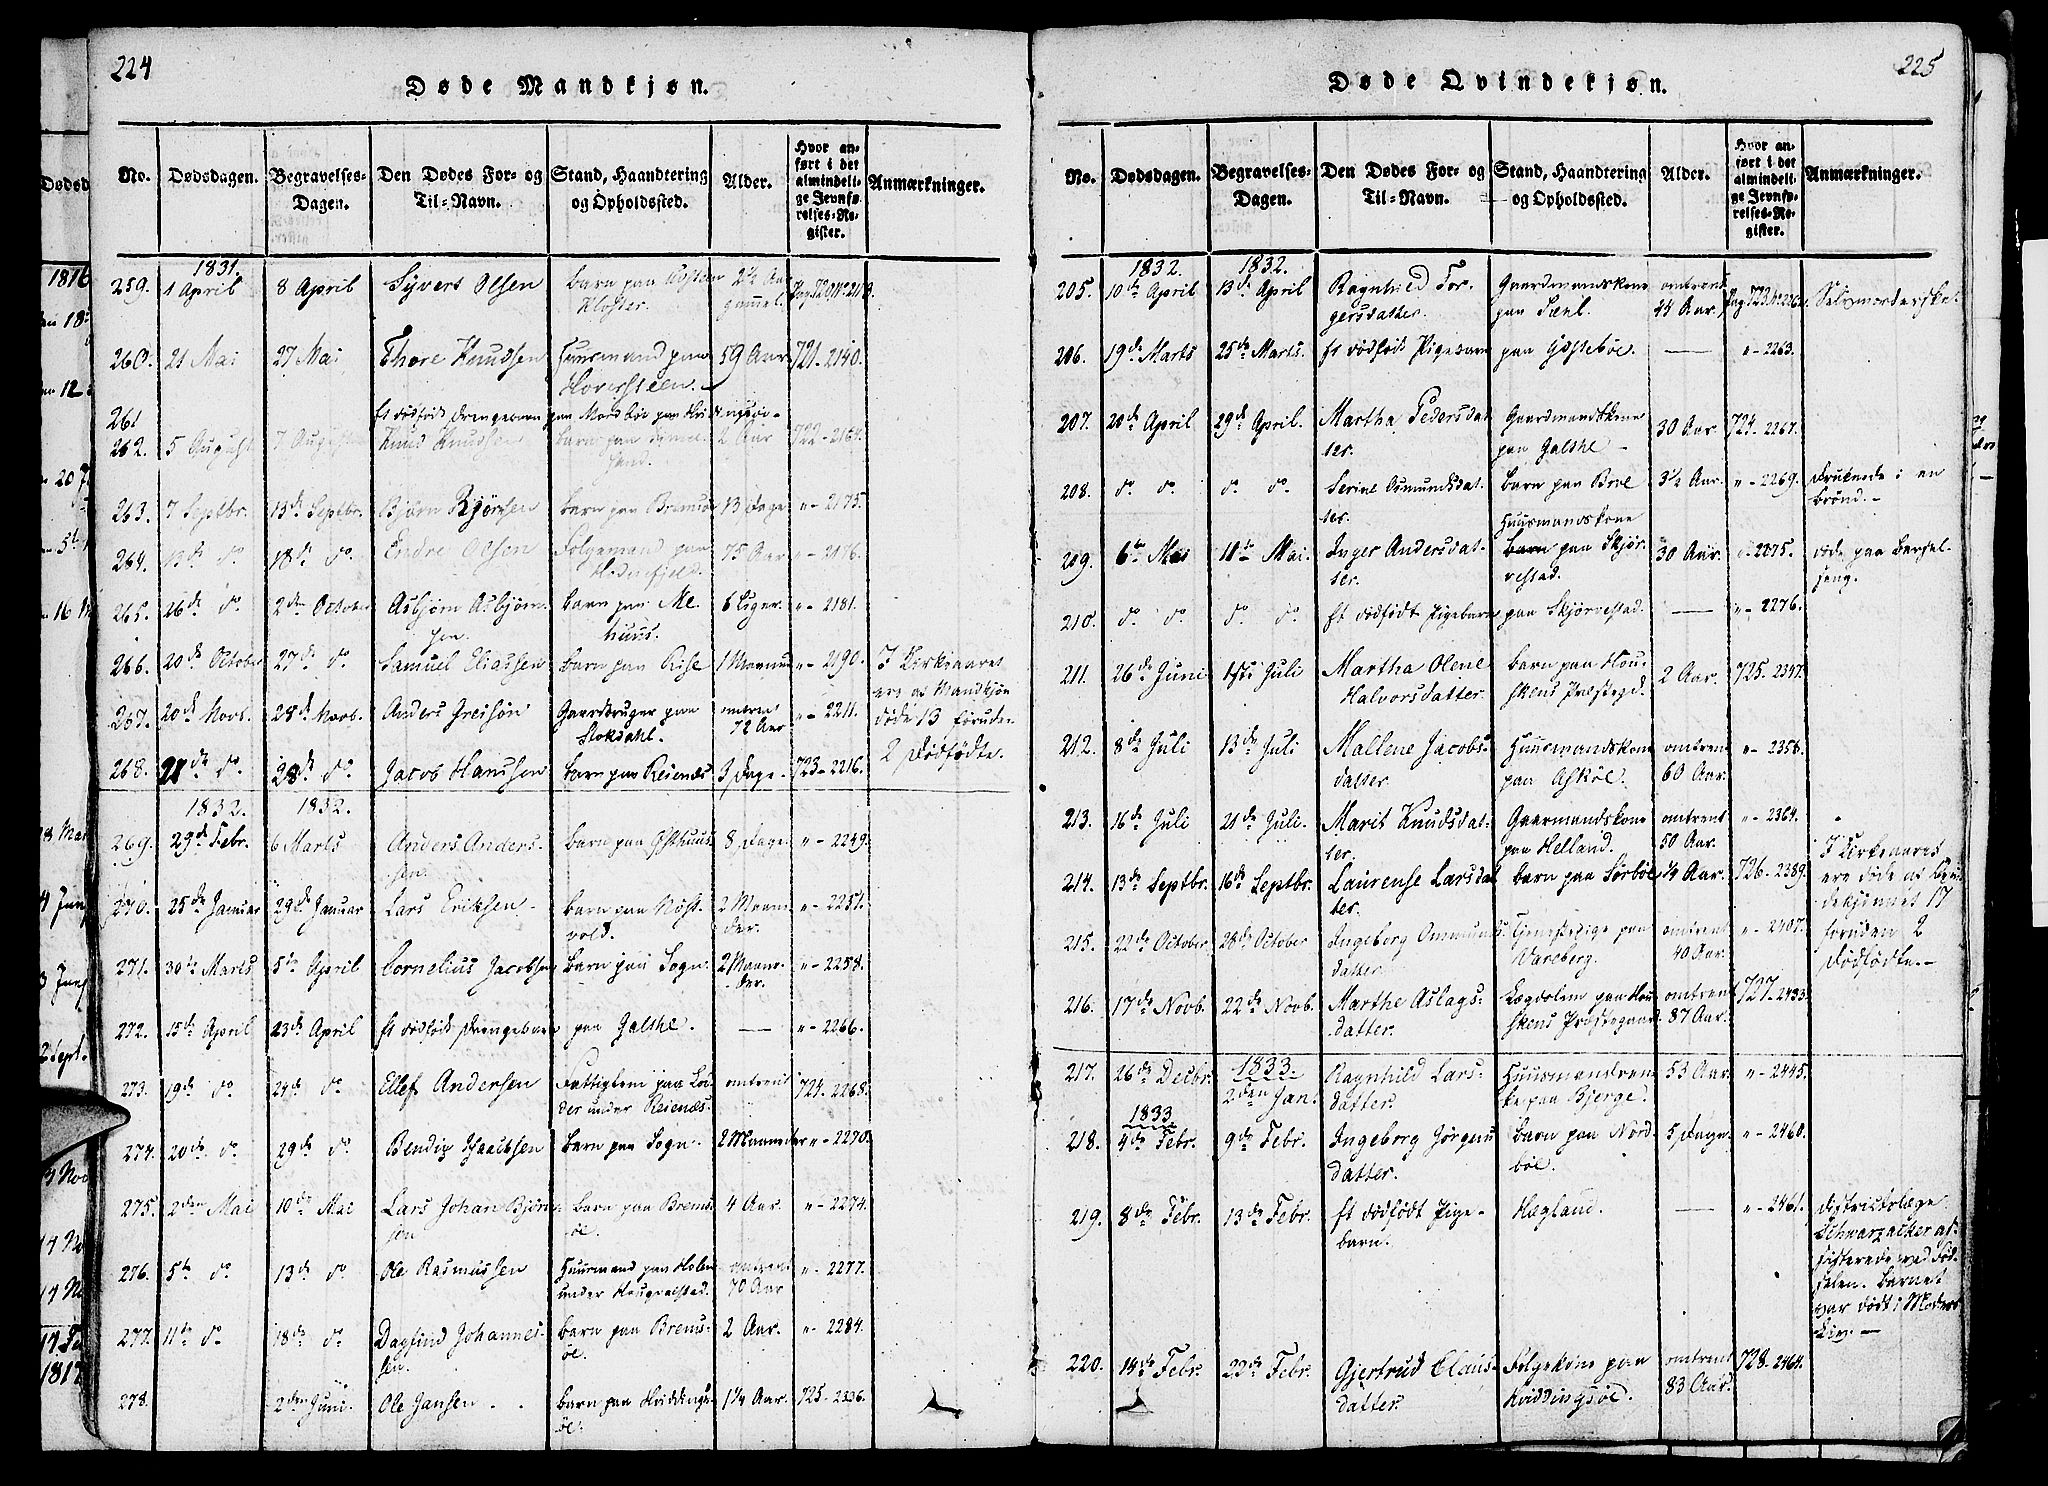 224
Døde Mandkjøn.
No. Dødsdagen. Begravelses-Dagen. Den Dødes For- og Til-Navn. Stand, Haandtering og Opholdssted. Alder. Hvor anført i det almindelige Jevnførelses-Register. Anmærkninger.
1831.
259. 1 April 8 April Syvert Olsen barn paa Kloster. 2½ Aar gammel.
260. 21 Mai 27 Mai Thore Knudsen Huusmand paa Hoversteen. 59 Aar 721-2140.
261 Et dødfødt Drengebarn paa
262. 5 August 7 August Knud Knudsen barn paa 2 Aar 722-2164.
263. 7 Septbr. 13de Septbr. Bjørn Bjørnsen barn paa Bremsøe 13 Dage "-2175.
264. 13de do 18de do Endre Olsen Folgemand paa 75 Aar "-2176.
265. 26de do 2den October Asbjørn Asbjørnsen. barn paa Mehuus. 6 Uger. "-2181.
266. 20de October 27de do Samuel Eliassen barn paa Rise 1 Maaned "-2190. I Kirkeaaret
ere af Mandkjøn
267. 20de Novb. 28de Novb. Anders Greisøn Gaardbruger paa Stokdahl. omtrent 72 Aar "-2211. døde 13 foruden
268. 21de do 28de do Jacob Hanssen barn paa Reienæs 3 Dage. 723-2216. 2 Dødfødte.
1832. 1832.
269. 29de Febr. 6 Marts Anders Andersen. barn paa Østhuus 8 Dage. "-2249.
270. 25de Januar 29de Januar Lars Eriksen barn paa Nøstvold. 2 Maaneder. "-2251.
271. 30te Marts 5te April Cornelius Jacobsen barn paa Sogn. 2 Maaneder. "-2258.
272. 15de April 23de April Et dødfødt Drengebarn paa Galthe. — "-2266.
273. 19de do 24de do Ellef Andersen Fattiglem paa under Reienæs. omtrent 724-2268.
274. 20de do 29de do Bendix Isaacksen barn paa Sogn. 2 Maaneder "-2270.
275. 2den Mai 10de Mai Lars Johan Bjørnsen barn paa Bremsøe. 4 Aar. "-2274.
276. 5te do 13de do Ole Rasmussen Huusmand paa Holen under Haugvalstad. omtrent 70 Aar "-2277.
277. 11te do 18de do Dagfind Johannessen. barn paa Bremsøe. 2 Aar. "-2284.
278. 2den Juni. Ole Jansen barn paa Hviddingsøe. 1¼ Aar. 725-2336.
225
Døde Qvindekjøn.
No. Dødsdagen. Begravelses-Dagen. Den Dødes For- og Til-Navn. Stand, Haandtering og Opholdssted. Alder. Hvor anført i det almindelige Jevnførelses-Register. Anmærkninger.
1832. 1832.
205. 10de April 13de April Ragnhild Torgersdatter. Gaardmandskone paa omtrent 44 Aar. Selvmorderske.
206. 19de Marts 25de Marts. Et dødfødt Pigebarn paa Gjestebøe. — "-2263.
207. 20de April 29de April. Martha Pedersdatter. Gaardmandskone paa Galthe 30 Aar. 724-2267.
208. do do do do Serine Osmundsdatter. barn paa Broe 3½ Aar. "-2269. Druknede i en Brønd.
209. 6te Mai 11te Mai. Inger Andersdatter. Huusmandskone barn paa Skjørvestad. 30 Aar. "-2275. døde paa Barselseng.
210. do do do do Et dødfødt Pigebarn paa Skjørvestad. — "-2276.
211. 26de Juni 1ste Juli Martha Olene Halvorsdatter. barn paa Houskens Prestegd. 2 Aar. 725-2347.
212. 8de Juli 13de Juli Mallene Jacobsdatter. Huusmandskone paa Askøe. omtrent 60 Aar. "-2356.
213. 16de Juli 21de Juli. Marit Knudsdatter. Gaarmandskone paa Helland. omtrent 50 Aar. "-2364.
I Kirkeaaret
214. 13de Septbr. 16de Septbr. Laurense Larsdatter. barn paa Sørbøe ¼ Aar. 726-2389. ere døde af Qvindekjønnet 17
215. 22de October. 28de October Ingeborg Ommundsdatter. Tjenestepige paa Vareberg. omtrent 40 Aar. "-2407. foruden 2 Dødfødte.
216. 17de Novb. 22de Novb. Marthe Aslagsdatter. Lægdslem paa Houskens Præstegaard. omtrent 87 Aar. 727-2433.
217. 26de Decbr. 1833. 2den Jan. Ragnhild Larsdatter. Huusmandsenke paa Bjerge. 53 Aar. "-2445.
1833.
218. 4de Febr. 9de Febr. Ingeborg Jørgensdatter. barn paa Nordbøe. 5 Dage. "-2460.
219. 8de Febr. 13de Febr. Et dødfødt Pigebarn. Hægland. — "-2461. Districtslæge
Schwarzacker assisterede ved Fødselen. Barnet
var dødt i Moders
Liv.
220. 14de Febr. 22de Febr. Gjertrud Clausdatter. Folgekone paa Hviddingsøe. omtrent 83 Aar. 728-2464.